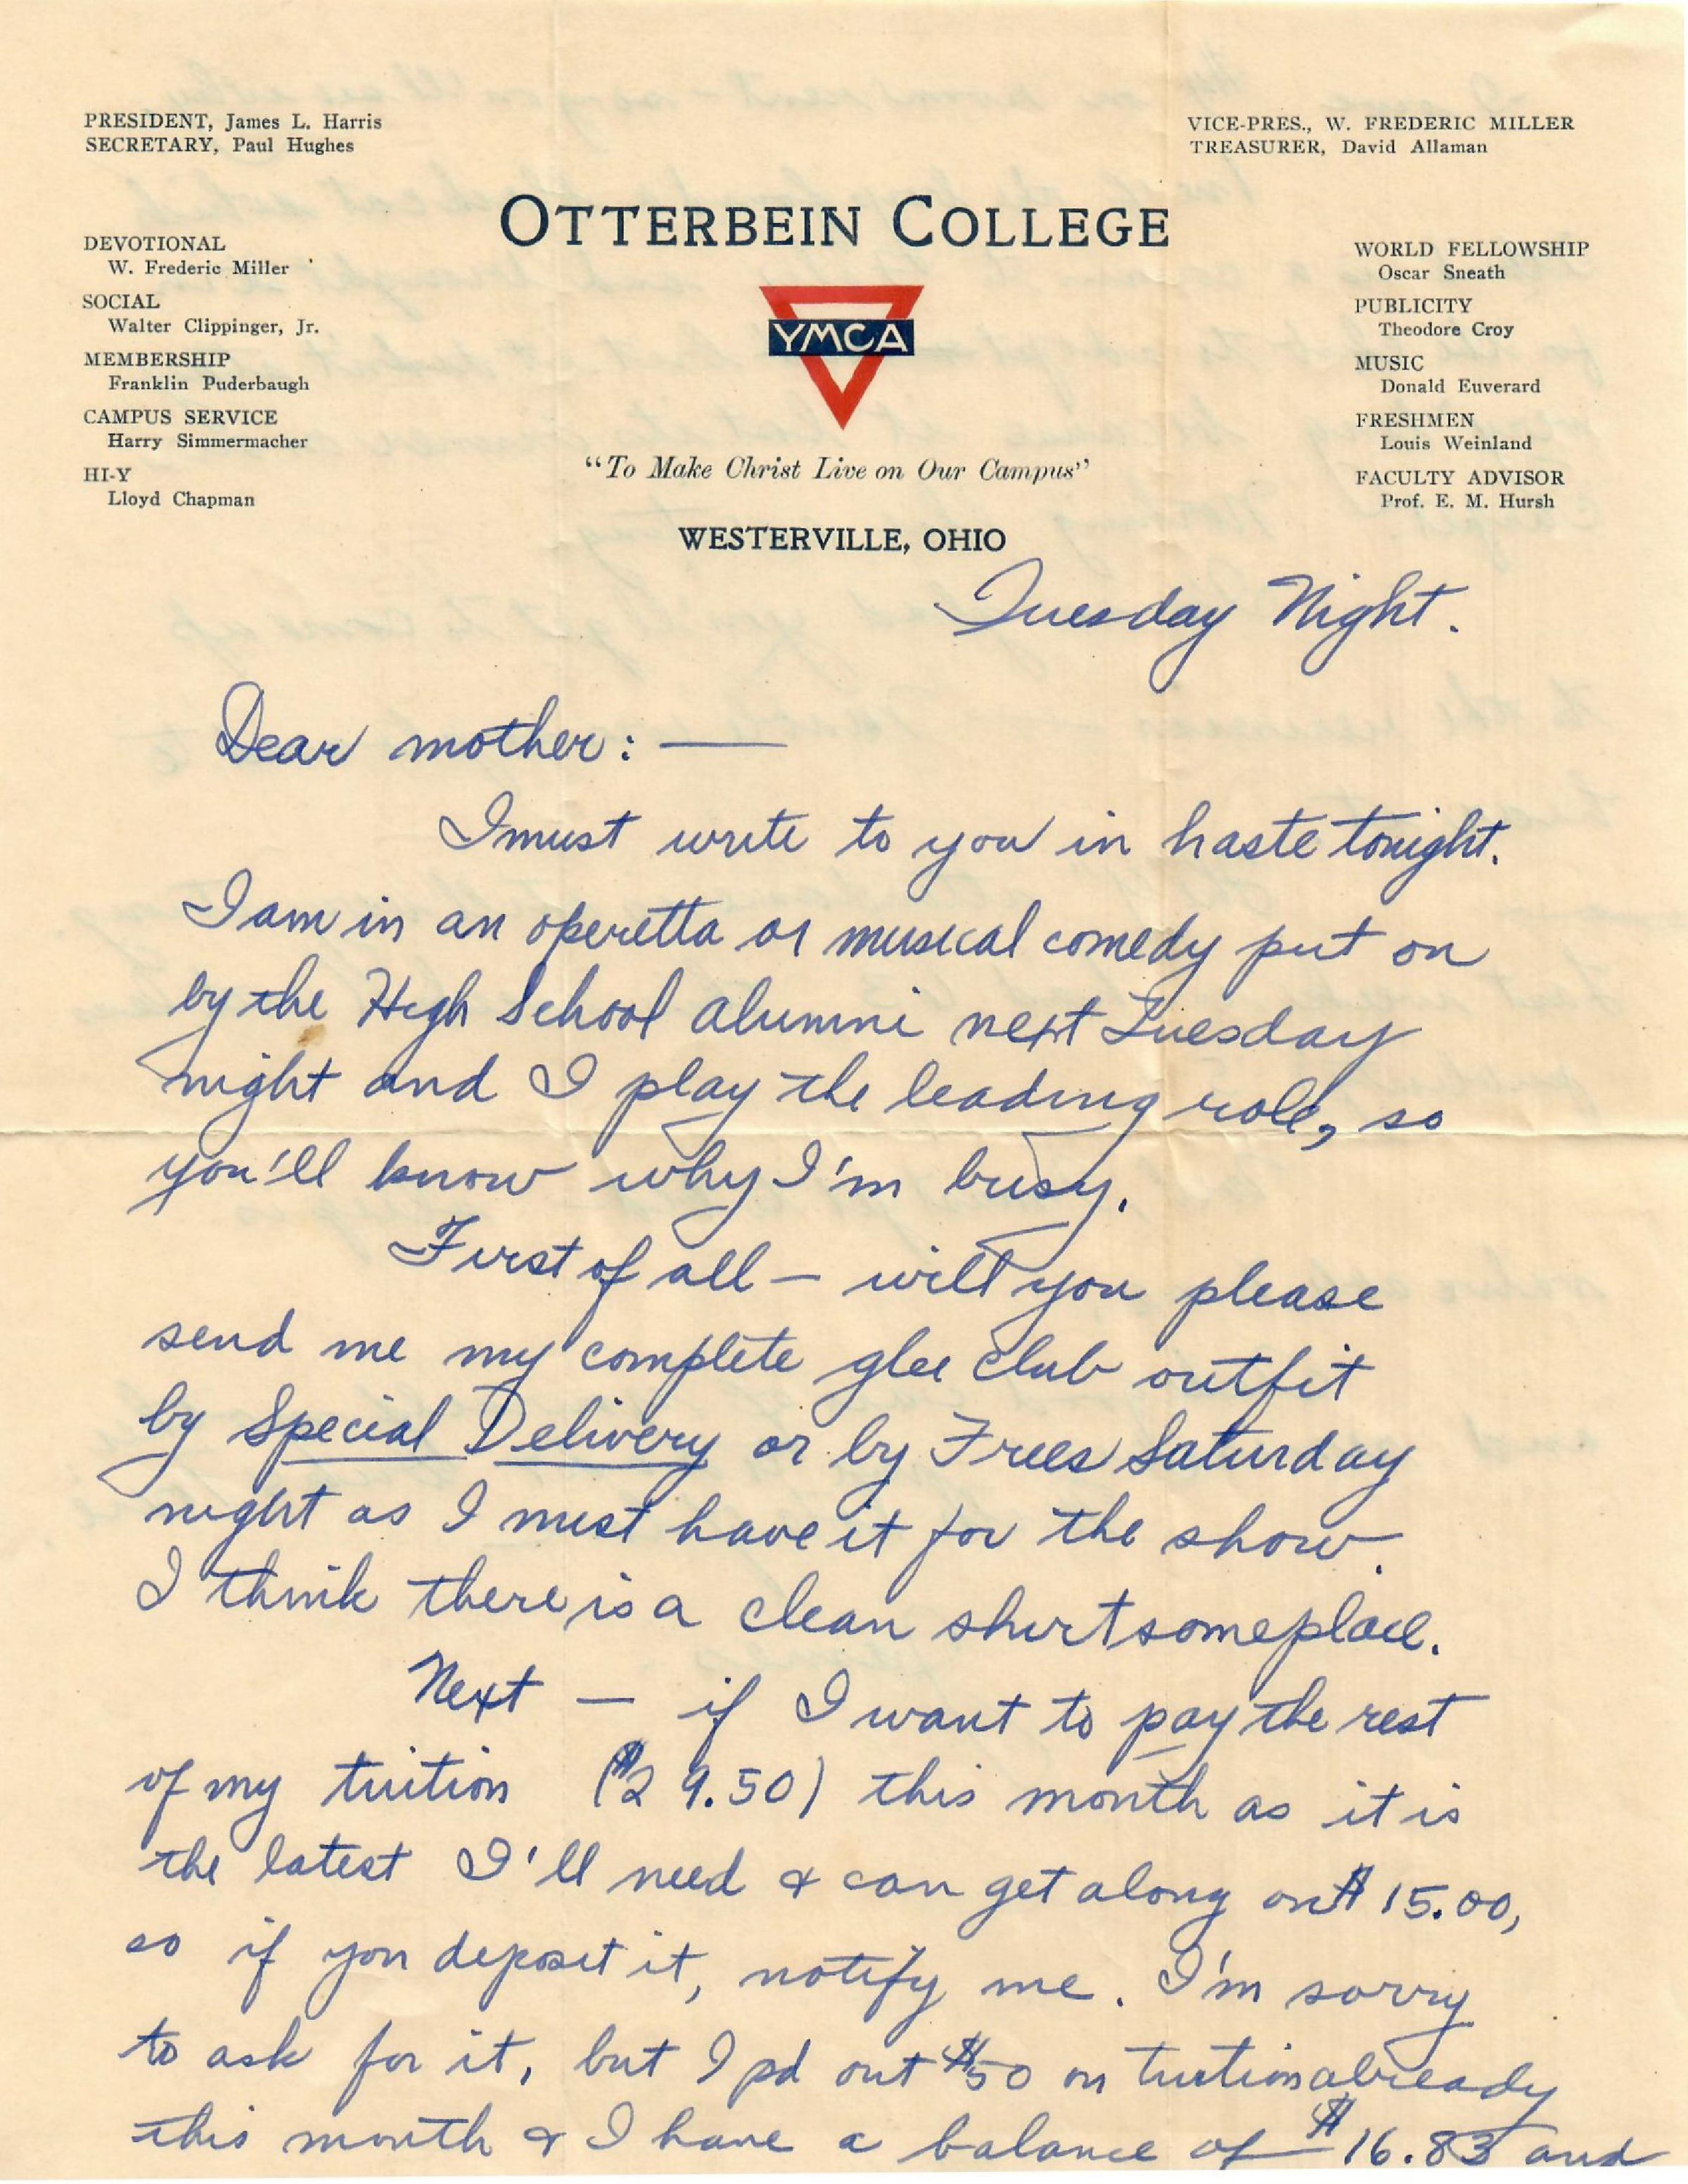 PRESIDENT, James L. Harris
SECRETARY, Paul Hughes
VICE-PRES., W. FREDERIC MILLER
TREASURER, David Allaman
OTTERBEIN COLLEGE
DEVOTIONAL
W. Frederic Miller
SOCIAL
Walter Clippinger, Jr.
MEMBERSHIP
Franklin Puderbaugh
CAMPUS SERVICE
Harry Simmermacher
HI-Y
Lloyd Chapman
YMCA
"To Make Christ Live on Our Campus"
WESTERVILLE, OHIO
WORLD FELLOWSHIP
Oscar Sneath
PUBLICITY
Theodore Croy
MUSIC
Donald Euverard
FRESHMEN
Louis Weinland
FACULTY ADVISOR
Prof. E. M. Hursh
Tuesday Night.
Dear mother: —
I must write to you in haste tonight.
I am in an operetta or musical comedy put on
by the High School alumni next Tuesday
night and I play the leading role, so
you'll know why I'm busy.
First of all — will you please
send me my complete glee club outfit
by Special Delivery or by Frees Saturday
night as I must have it for the show.
I think there is a clean shirt someplace.
Next — if I want to pay the rest
of my tuition ($29.50) this month as it is
the latest I'll need & can get along on $15.00,
so if you deposit it, notify me. I'm sorry
to ask for it, but I pd out $50 on tuition already
this month & I have a balance of $16.83 and